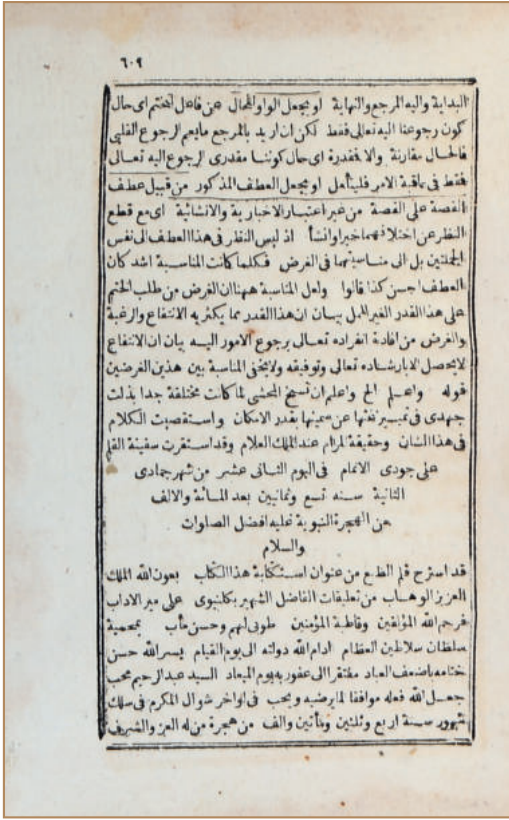 ٦٠٩
البداية واليه المرجع والنهاية او يجعل الواو للحال عن فاعل الختم اى حال
كون رجوعنا اليه تعالى فقط لكن ان اريد بالمرجع ما يعم الرجوع القلبى
فالحال مقارنة والا فمقدرة اى حال كوننا مقدرى الرجوع اليه تعالى
فقط فى عاقبة الامر فليتأمل او يجعل العطف المذكور من قبيل عطف
القصة على القصة من غير اعتبار الاخبارية والانشائية اى مع قطع
النظر عن اختلافهما خبرا وانشأ اذ ليس النظر فى هذا العطف الى نفس
الجملتين بل الى مناسبتهما فى الغرض فكلما كانت المناسبة اشد كان
العطف احسن كذا قالوا ولعل المناسبة ههنا ان الغرض من طلب الختم
على هذا القدر الغير الممل بيان ان هذا القدر مما يكثر به الانتفاع والرغبة
والغرض من افادة انفراده تعالى برجوع الامور اليه بيان ان الانتفاع
لا يحصل الا بارشاده تعالى وتوفيقه ولا يخفى المناسبة بين هذين الغرضين
قوله واعلم الخ واعلم ان نسخ المحشى لما كانت مختلفة جدا بذلت
جهدى فى تمييز غثها عن سمينها بقدر الامكان واستقصيت الكلام
فى هذا الشان وحقيقة المرام عند الملك العلام وقد استقرت سفينة القلم
على جودى الاتمام فى اليوم الثانى عشر من شهر جمادى
الثانية سنه تسع وثمانيين بعد المائة والالف
من الهجرة النبوية عليه افضل الصلوات
والسلام
قد استرح قلم الطبع من عنوان استكتابة هذا الكتاب بعون الله الملك
العزيز الوهاب من تعليقات الفاضل الشهير بكلنبوى على مير الاداب
فرحم الله المؤلفين وقاطبة المؤمنين طوبى لهم وحسن مآب بمحمية
سلطان سلاطين العظام ادام الله دولته الى يوم القيام يسر الله حسن
ختامه باضعف العباد مفتقرا الى عفو ربه يوم الميعاد السيد عبد الرحيم محب
جعل الله فعله موافقا لما يرضيه ويحب فى اواخر شوال المكرم فى سلك
شهور سنة اربع وثلثين ومأتين والف من هجرة من له العز والشرف